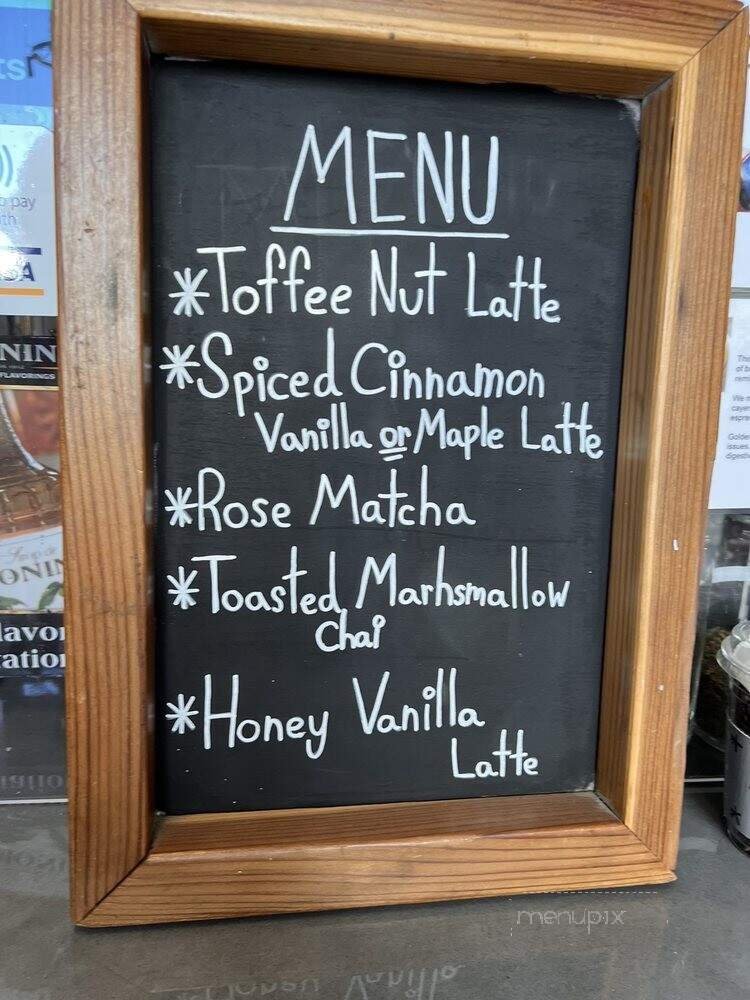 MENU
*Toffee Nut Latte
*Spiced Cinnamon
Vanilla or Maple Latte
*Rose Matcha
*Toasted Marhsmallow
Chai
*Honey Vanilla
Latte
menupix
pay
NIN
FLAVORINGS
ONIN